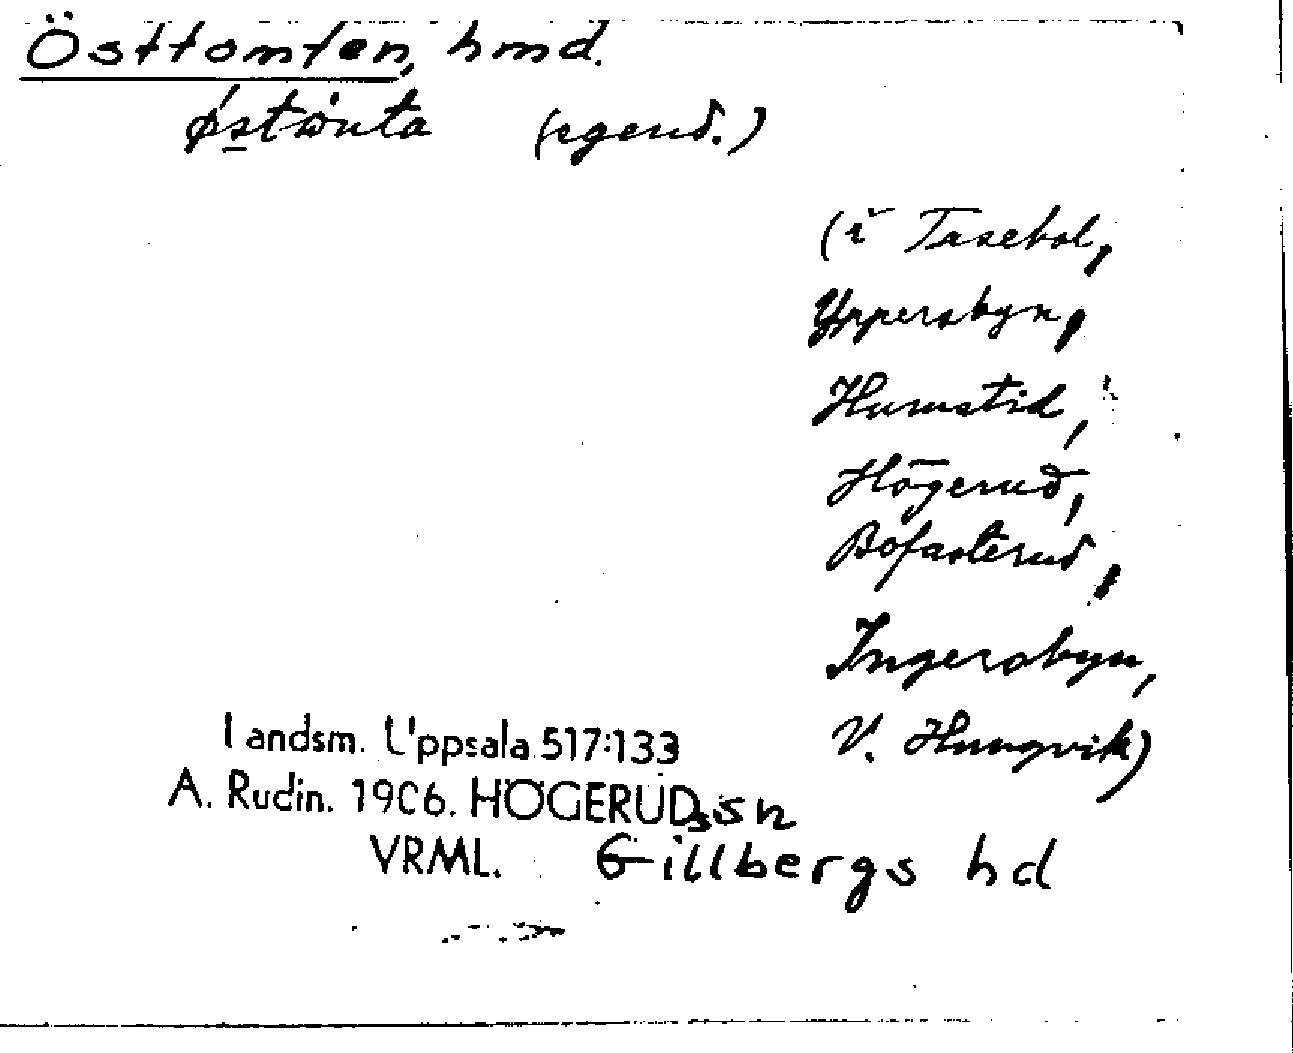 Östtomten, hmd.
østònta (egend.)
(i Tasebol,
Yppersbyn,
Humstid,
Högerud,
Bofasterud,
Ingersbyn,
V. Hungvik)
Landsm. Uppsala 517:133
A. Rudin. 1906. HÖGERUDs sn
VRML. Gillbergs hd